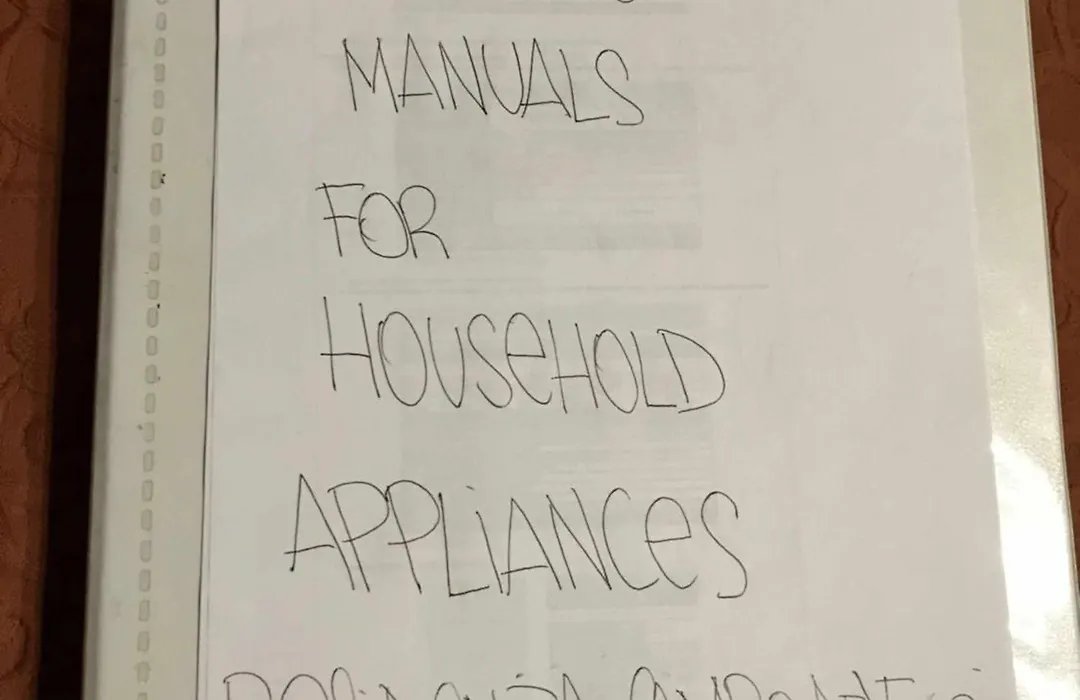 MANUALS
FOR
HOUSEHOLD
APPLIANCES